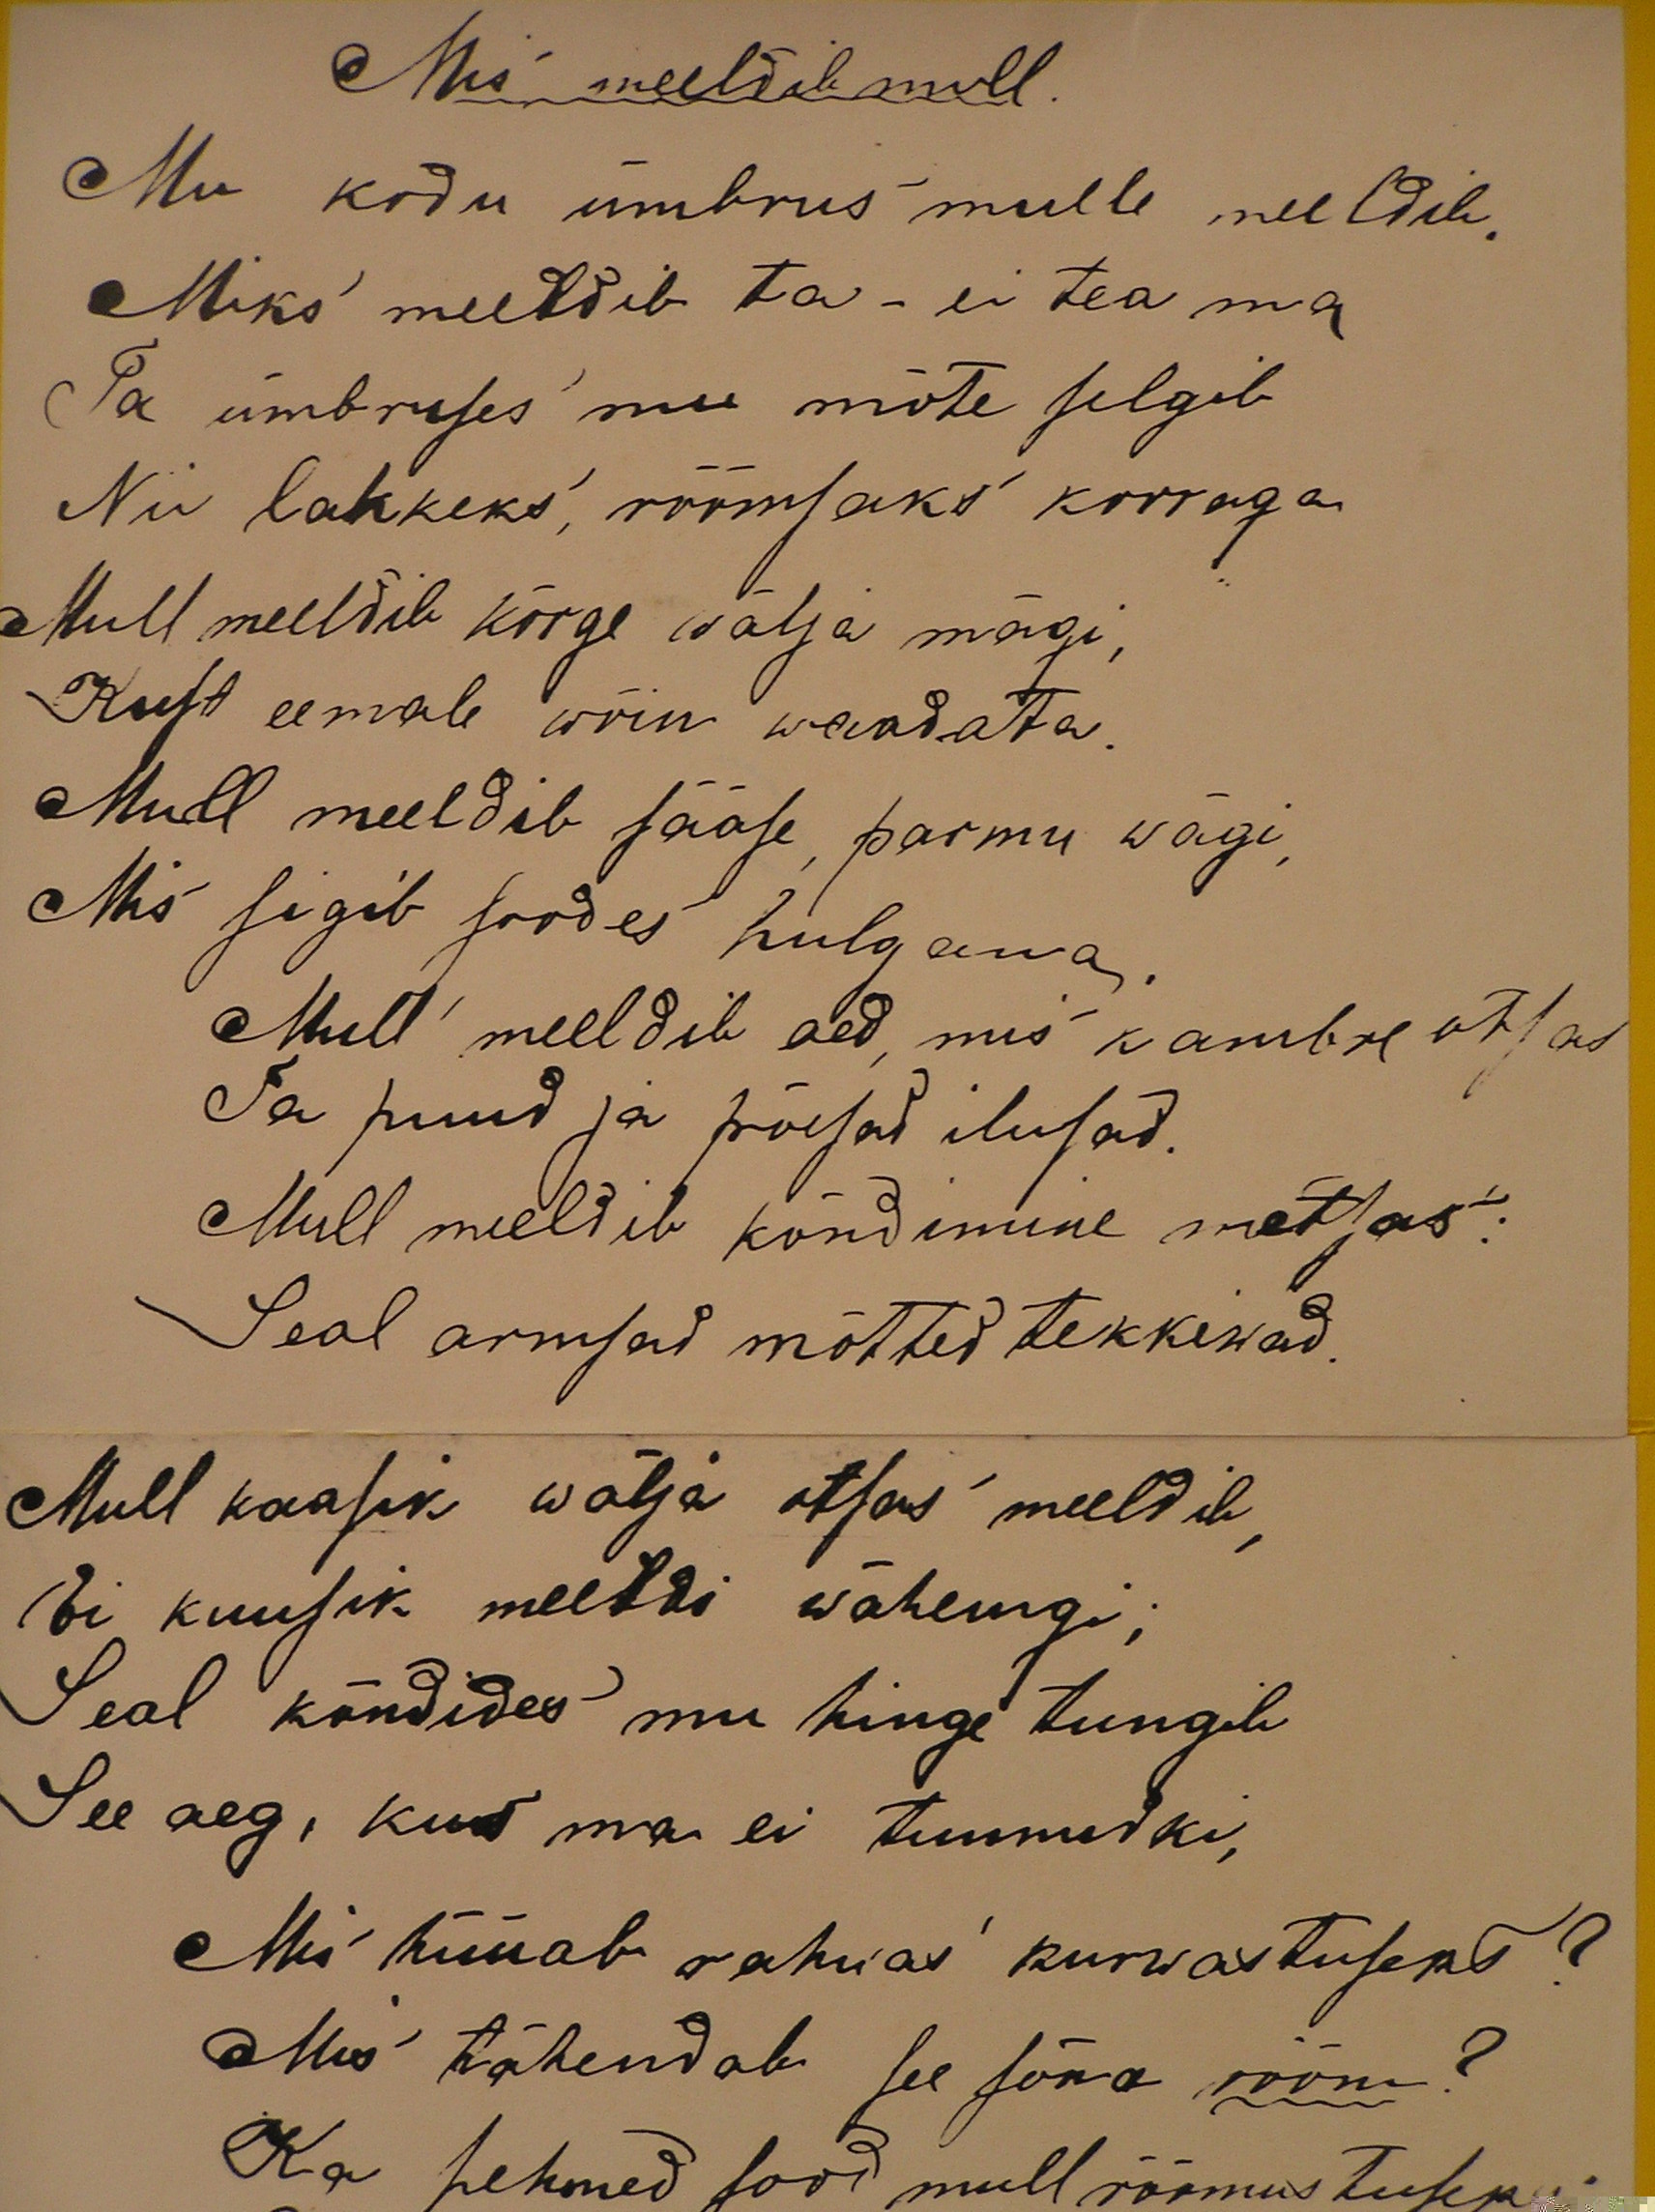 Mis meeldib mull.
Mu kodu ümbrus mulle meeldib.
Miks meeldib ta - ei tea ma
Ta ümbruses mu mõte selgib
Nii lahkeks, rõõmsaks korraga
Mull meeldib kõrge wälja mägi,
Kust eemale wõin waadata.
Mull meeldib sääse, parmu wägi,
Mis sigib soodes hulgana.
Mull meeldib aed, mis kambre otsas
Ta puud ja põesad ilusad.
Mull meeldib kõndimine metsas:
Seal armsad mõtted tekkiwad.
Mull kaasik wälja otsas meeldib,
Ei kuusik meeldi wähemgi;
Seal kõndides mu hinge tungib
See aeg, kus ma ei tunnudki,
Mis hüüab rahwas kurwastuseks?
Mis tähendab see sõna rõõm?
Ka pehmed sood mull rõõmustuseks